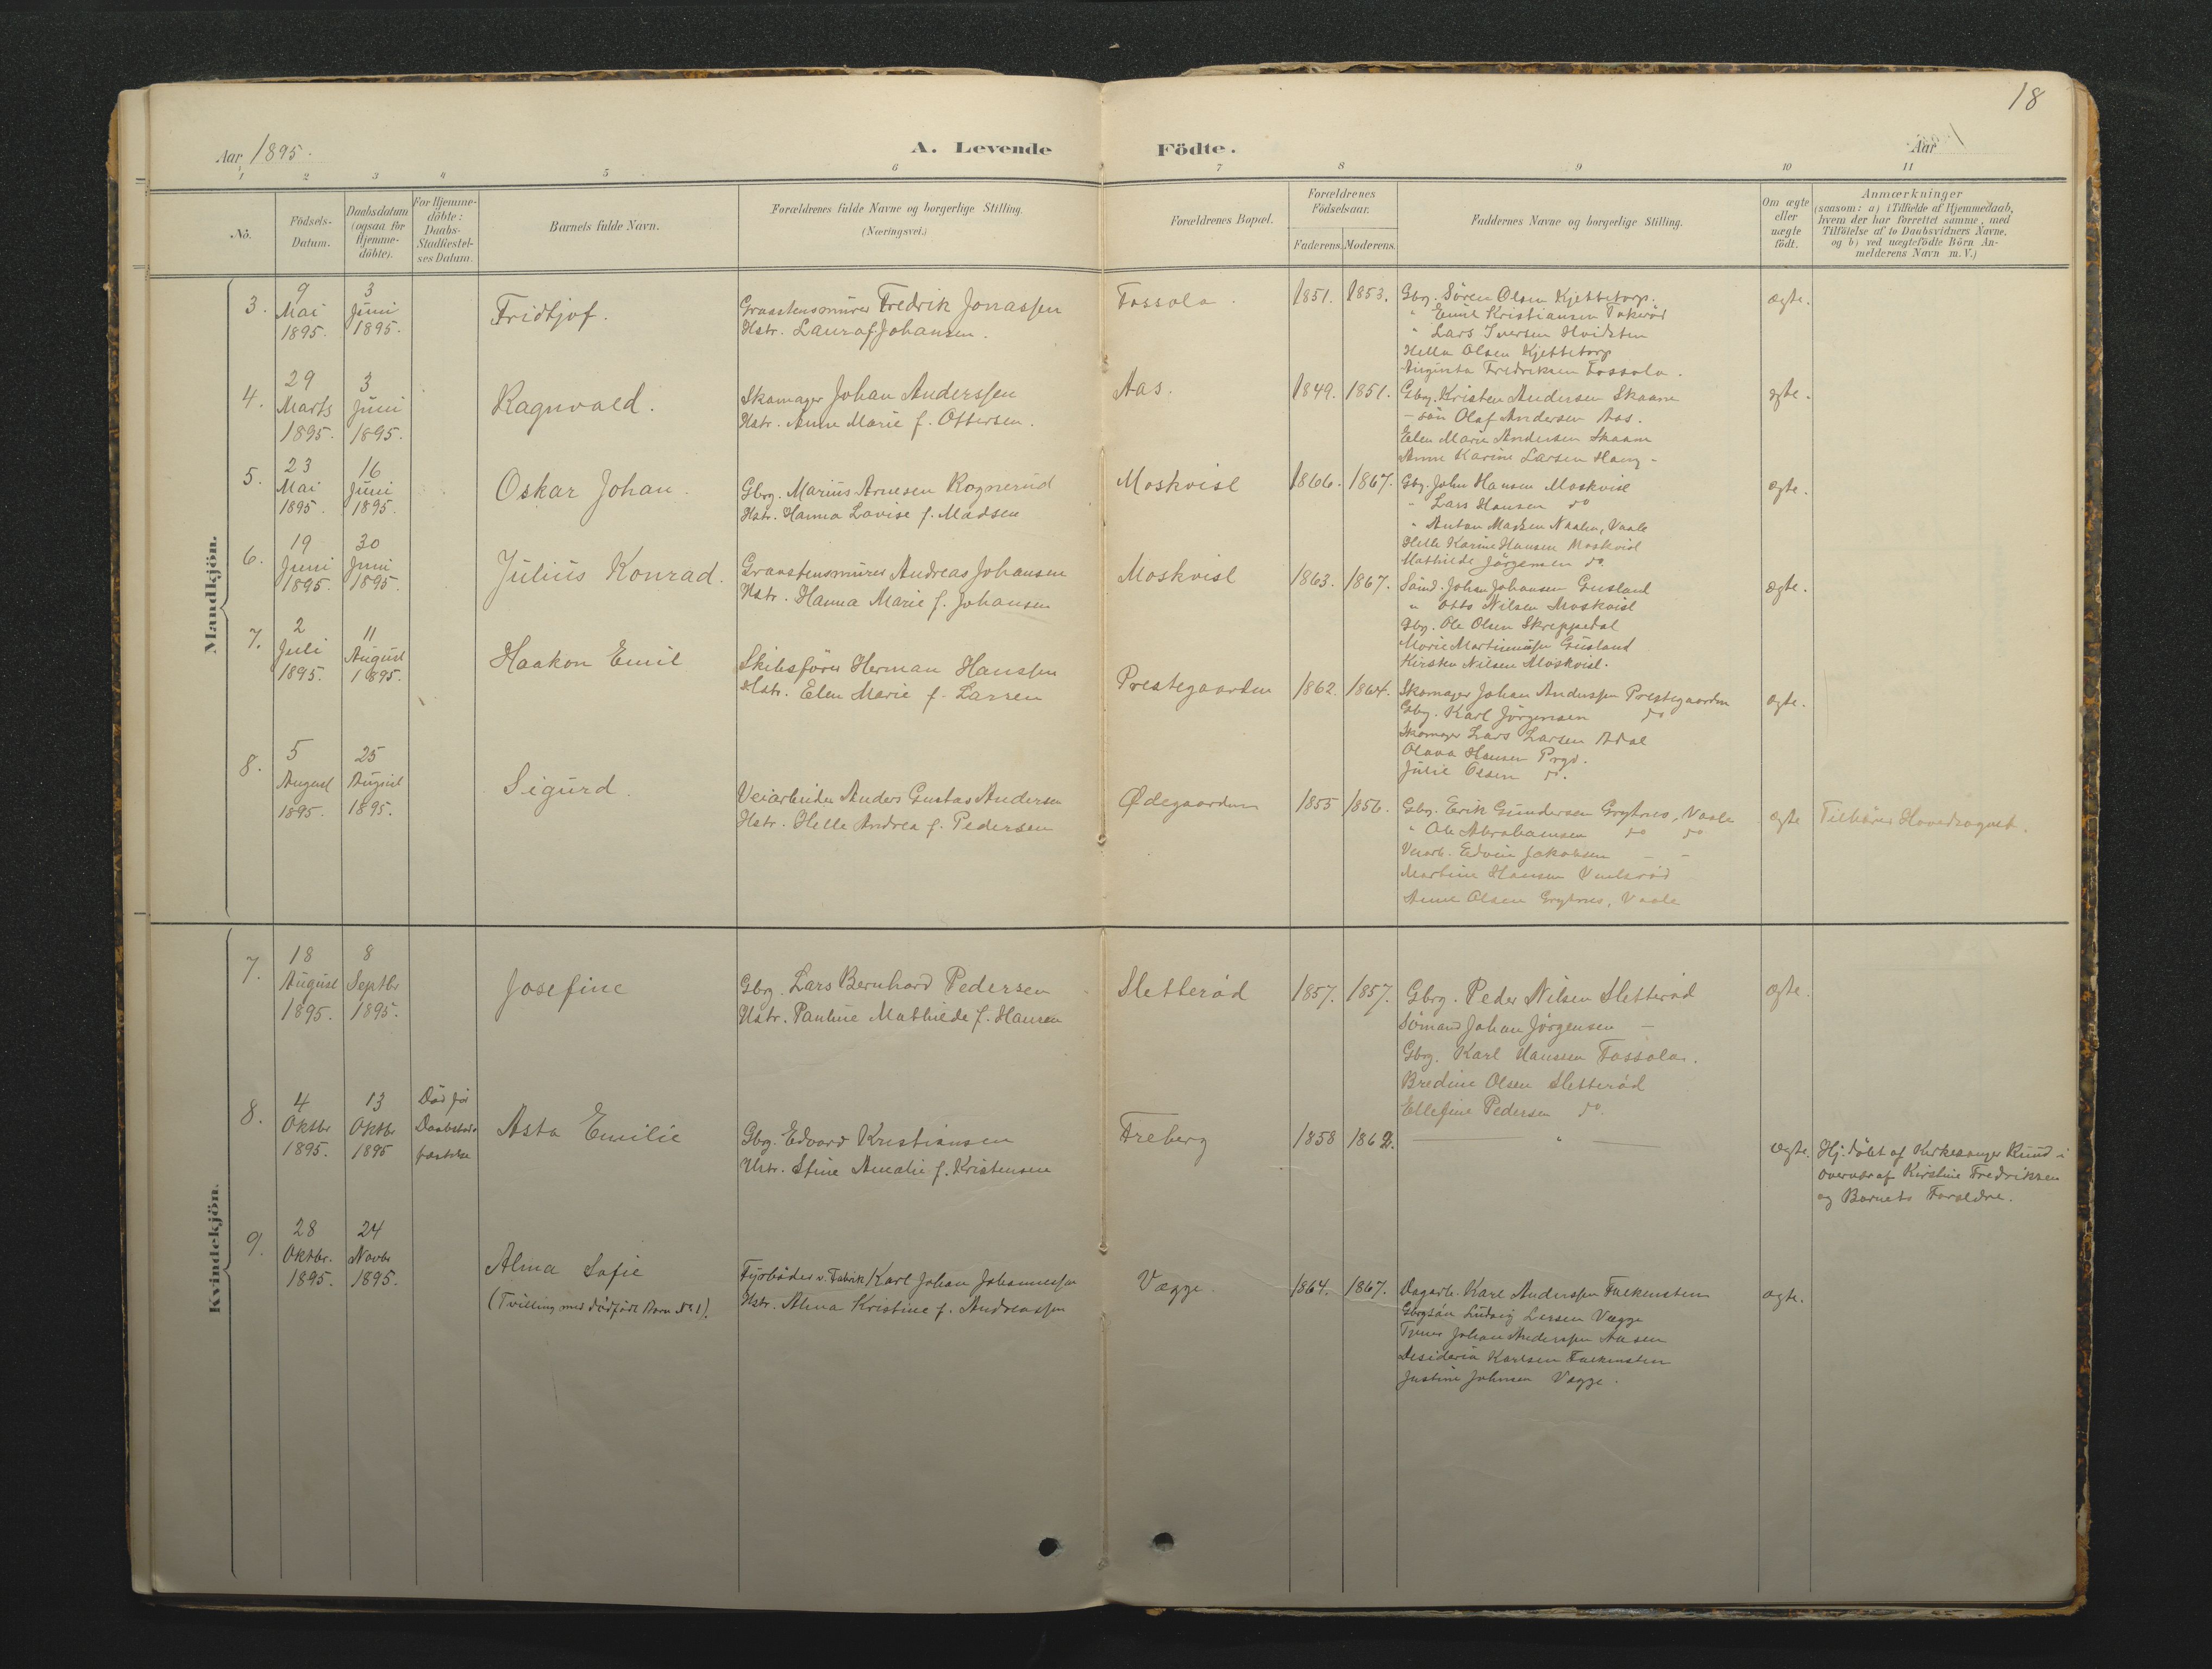 18
Aar 1895.
A. Levende Födte.
Aar
1 2 3 4 5 6 7 8 9 10 11
No.
Födsels-
Datum.
Daabsdatum
(ogsaa for
Hjemme-
döbte).
For Hjemme-
döbte:
Daabs-
Stadfæstel-
ses Datum.
Barnets fulde Navn.
Forældrenes fulde Navne og borgerlige Stilling.
(Næringsvei.)
Forældrenes Bopæl.
Forældrenes
Födselsaar.
Faderens. Moderens.
Faddernes Navne og borgerlige Stilling.
Om ægte
eller
uægte
födt.
Anmærkninger
(saasom: a) i Tilfælde af Hjemmedaab,
hvem der har forrettet samme, med
Tilföielse af to Daabsvidners Navne.
og b) ved uægtefödte Börn An-
melderens Navn m. V.)
Mandkjön.
3.
9
Mai
1895.
3
Juni
1895.
Fridtjof.
Graastensmurer Fredrik Jonassen
Hstr. Laura f. Johansen.
Fossola.
1851. 1853.
Gbg. Sören Olsen Kjettetorp.
" Emil Kristiansen Tokeröd
" Lars Iversen Hvidsten
Hella Olsen Kjettetorp
Augusta Fredriksen Fossola.
ægte.
4.
29
Marts
1895.
3
Juni
1895.
Ragnvald.
Skomager Johan Anderssen
Hstr. Anne Marie f. Ottersen.
Aas.
1849. 1851.
Gbg. Kristen Andersen Skaane
- sön Olaf Andersen Aas.
Elen Marie Andersen Skaane
Anne Karine Larsen Haug -
ægte.
5.
23
Mai
1895.
16
Juni
1895.
Oskar Johan.
Gbrg. Marius Arnesen Rognerud
Hstr. Hanna Lovise f. Madsen
Moskvisl
1866. 1867.
Gbg. John Hansen Moskvisl
" Lars Hansen do
" Anton Madsen Naalen, Vaale
Helle Karine Hansen Moskvisl
Mathilde Jörgensen do.
ægte.
6.
19
Juni
1895.
30
Juni
1895.
Julius Konrad.
Graastensmurer Andreas Johansen
Hstr. Hanna Marie f. Johansen
Moskvisl
1863. 1867.
Sömd. Johan Johansen Gusland
" Otto Nilsen Moskvisl
Gbg. Ole Olsen Skreppedal
Marie Martinussen Gusland
Kirsten Nilsen Moskvisl.
ægte.
7.
2
Juli
1895.
11
August
1895.
Haakon Emil
Skibsförer Herman Hanssen
Hstr. Elen Marie f. Larsen
Prestegaarden
1862. 1864.
Skomager Johan Anderssen Prestegaarden
Gbg. Karl Jörgensen do
Skomager Lars Larsen Adal
Olava Hansen Prgd.
Julie Olsen do.
ægte.
8.
5
August
1895.
25
August
1895.
Sigurd.
Veiarbeider Anders Gustav Andersen
Hstr. Helle Andrea f. Pedersen
Ødegaarden
1855 1856.
Gbg. Erik Gundersen Grytnes, Vaale
" Ole Abrahamsen do do
Veiarb. Edvin Jakobsen - -
Martine Hansen
Anne Olsen Grytnes, Vaale
ægte
Tilhörer Hovedsognet.
Kvindekjön.
7.
18
August
1895.
8
Septbr
1895.
Josefine
Gbg. Lars Bernhard Pedersen
Hstr. Pauline Mathilde f. Hansen
Sletteröd
1857. 1857.
Gbrg. Peder Nilsen Sletteröd
Sömand Johan Jörgensen -
Gbrg. Karl Hanssen Fossola.
Bredine Olsen Sletteröd
Ellefine Pedersen do.
ægte.
8.
4
Oktbr
1895.
13
Oktbr
1895
Död för
Daabsstad-
fæstelse
Asta Emilie
Gbg. Edvard Kristiansen
Hstr. Stine Amalie f. Kristensen
Freberg
1858 1862.
— " —
ægte.
Hj. döbt af Kirkesanger Ruud i
overvær af Kirstine Fredriksen
og Barnets Foreldre.
9.
28
Oktbr.
1895.
24
Novbr
1895.
Alma Sofie
(Tvilling med dödfödt Barn No 1).
Fyrböder v. Fabrik Karl Johan Johannessen
Hstr. Alma Kristine f. Andreassen
Vægge.
1864. 1867.
Dagarb. Karl Anderssen Falkensten
Gbrgsön Ludvig Larsen Vægge
Johan Anderssen Aasen
Desideria Karlsen Falkensten
Justine Johnsen Vægge.
ægte.